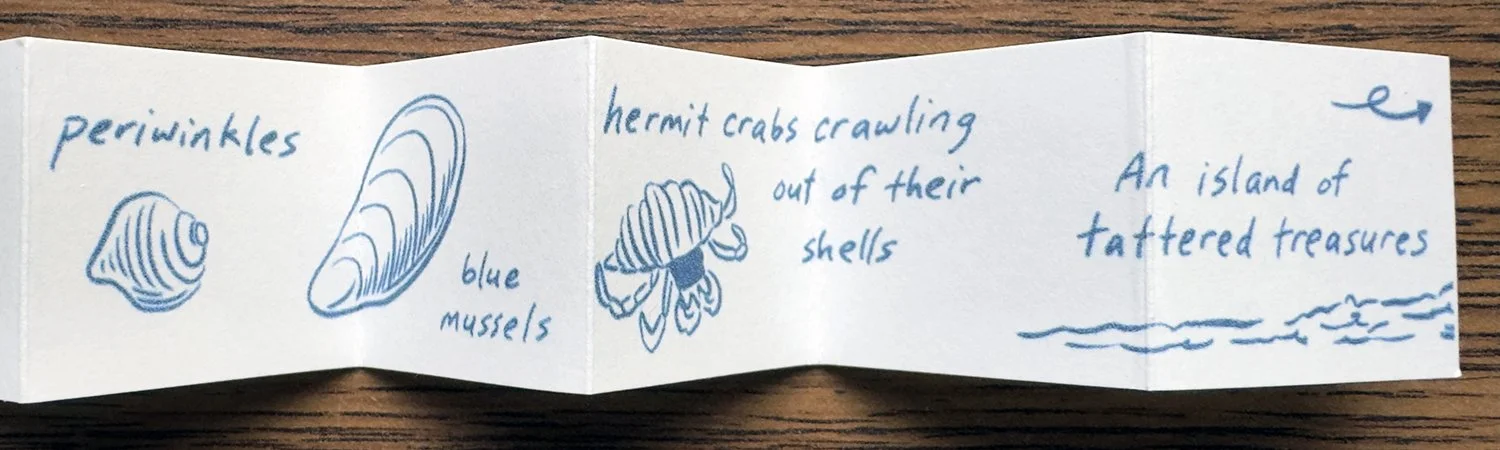 periwinkles
blue
mussels
hermit crabs crawling
out of their
shells
An island of
tattered treasures